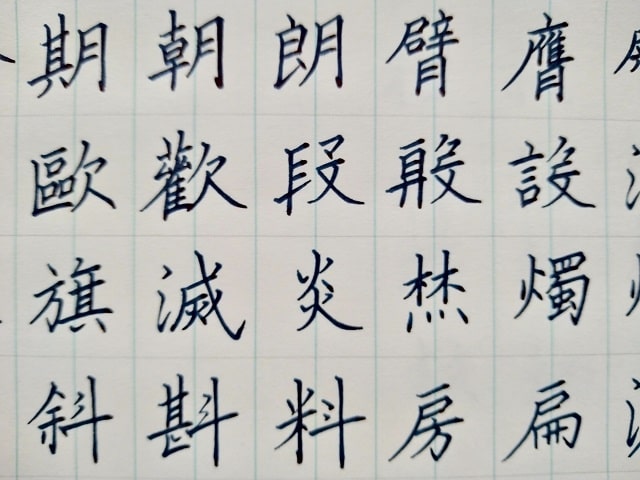 期朝朗臂膺
歐歡段殷設
旗滅炎焚燭
斜斟料房扁